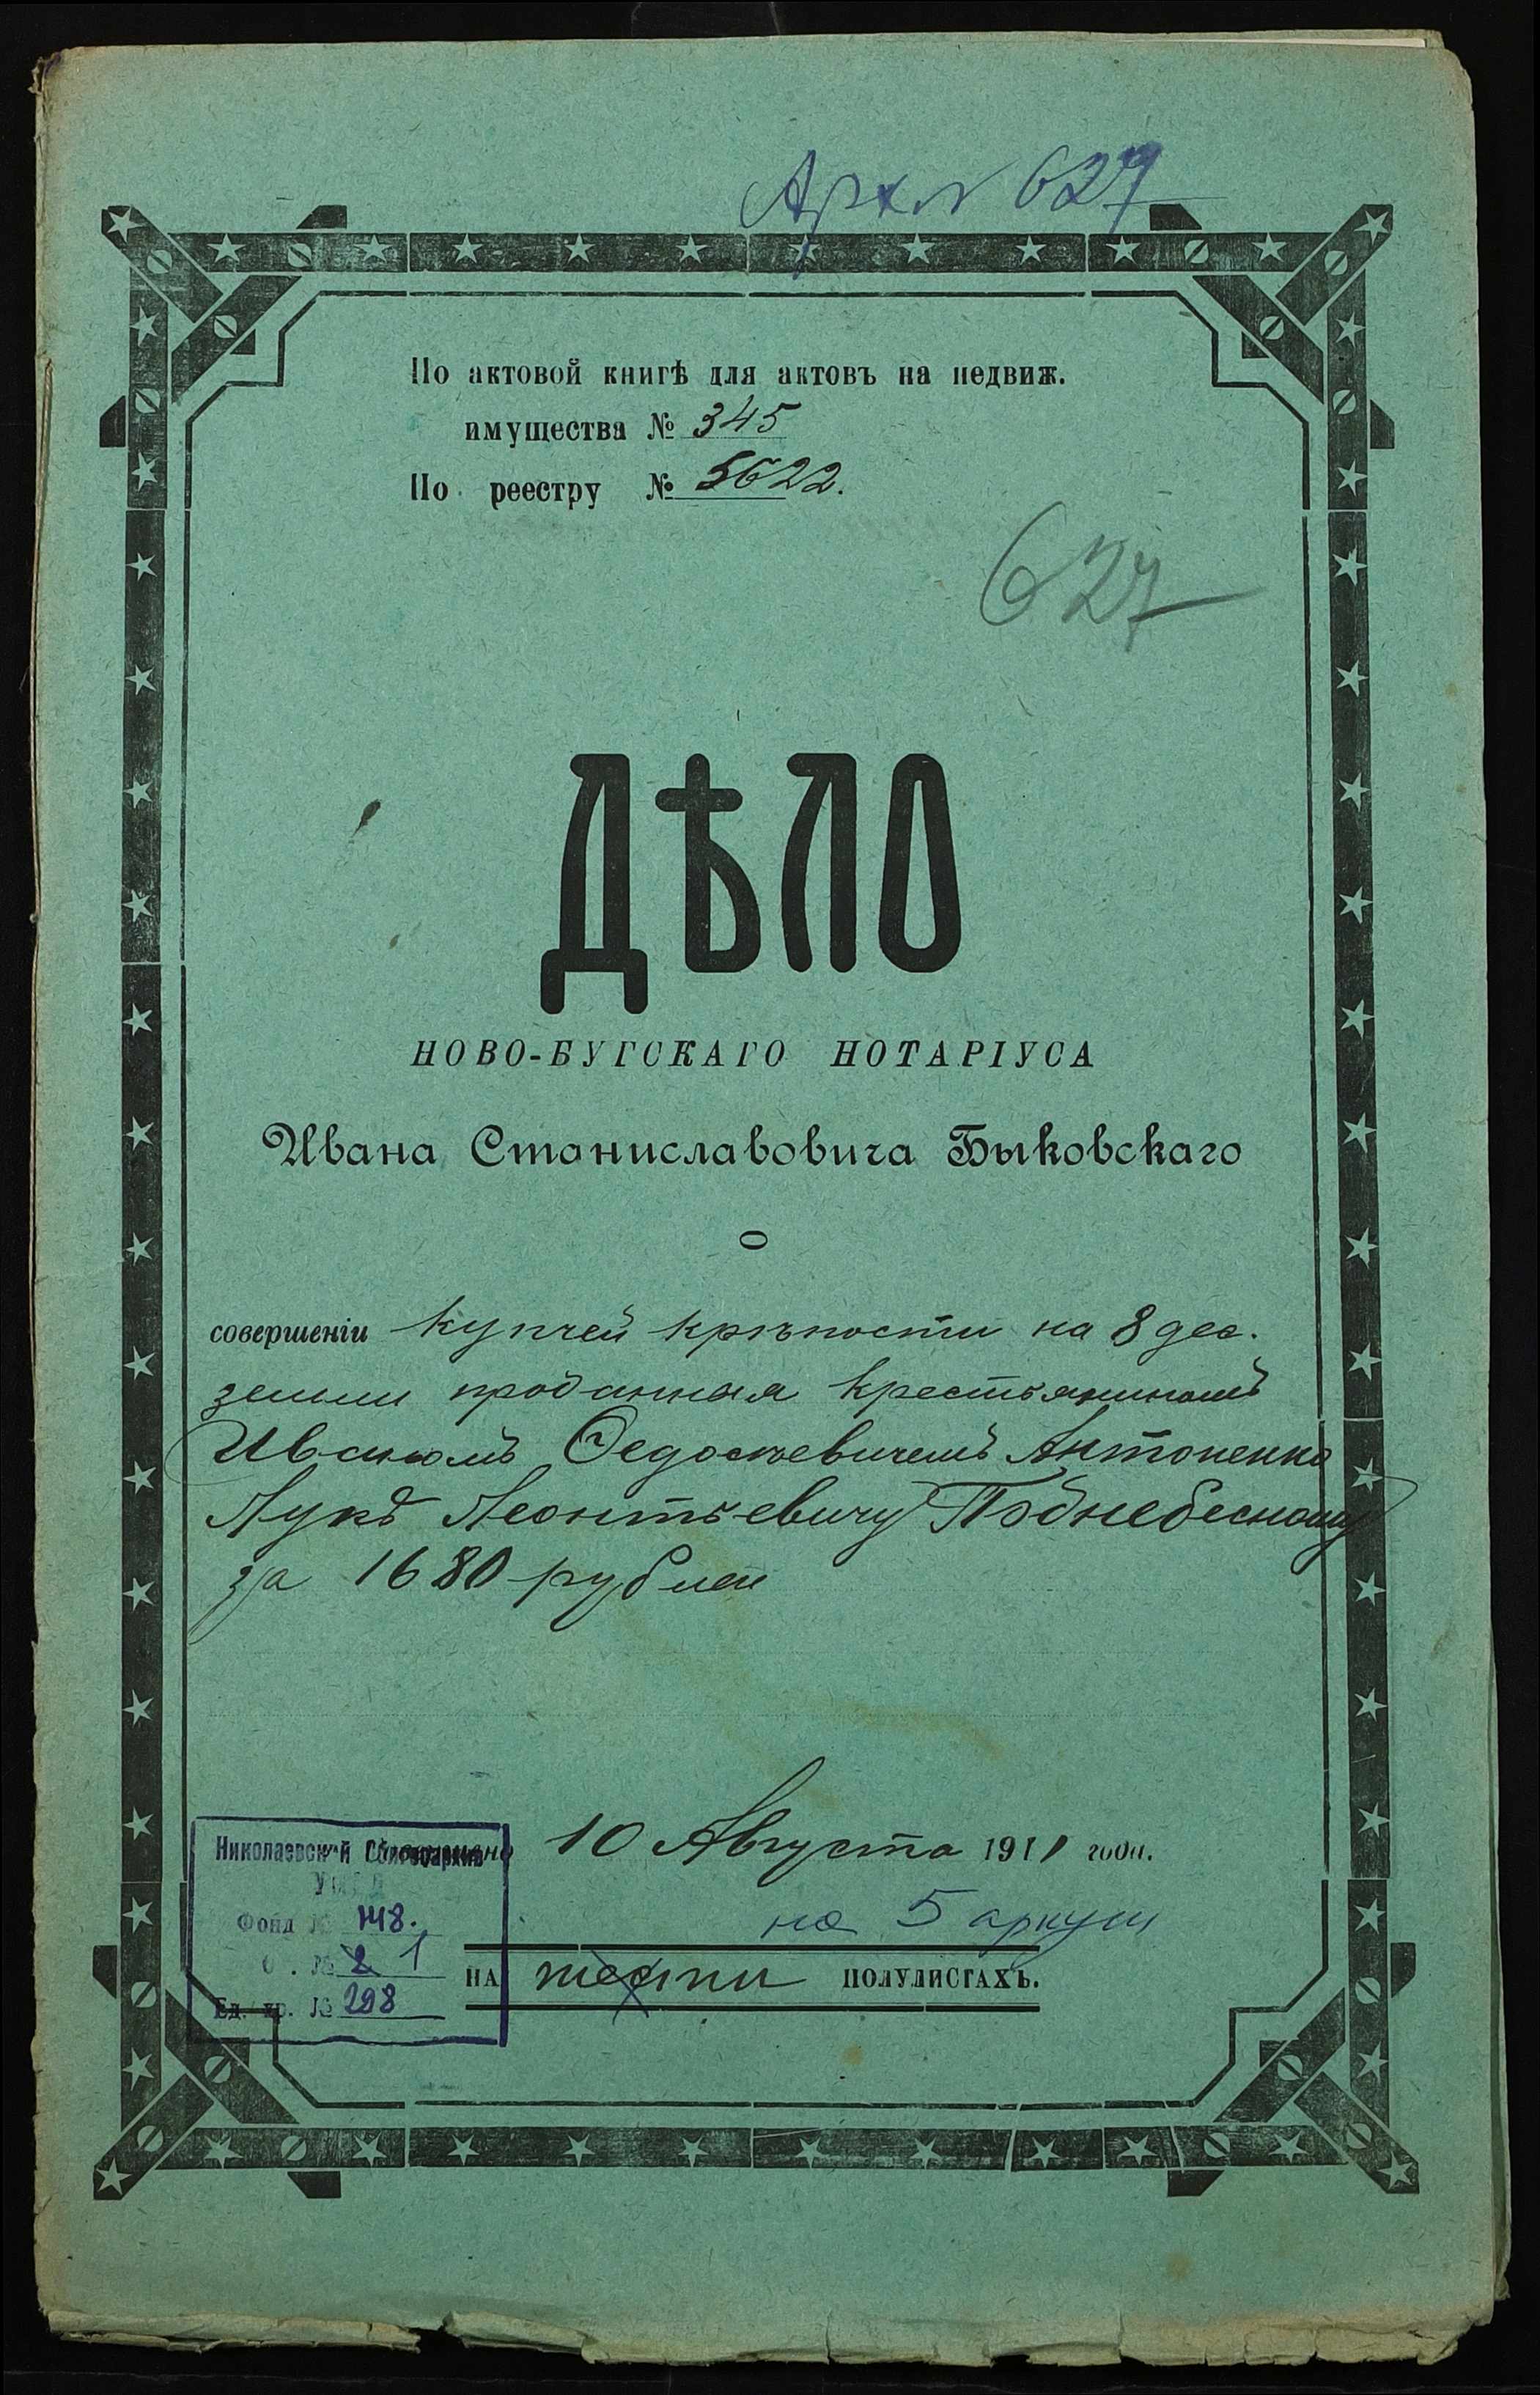 Арх № 627
По актовой книгѣ для актовъ на недвиж.
имущества № 345
По реестру № 5622.
627
ДѢЛО
НОВО-БУГСКАГО НОТАРІУСА
Ивана Станиславовича Быковскаго
О
совершеніи купчей крѣпости на 8 дес.
земли проданная крестьяниномъ
Иваномъ Федосѣевичемъ Антоненко
Лукѣ Леонтьевичу Поднебесному
за 1680 рублей
10 Августа 1911 года.
Николаевский Облгосархив
Фонд № 148.
О . № 2 1
Ед. хр. № 298
на 5 аркуш
НА шести ПОЛУЛИСТАХЪ.